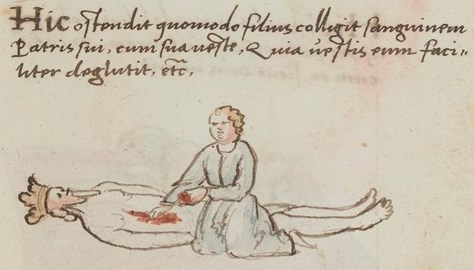 Hic ostendit quomodo filius colligit sanguinem
Patris sui, cum sua veste, Quia vestis eum faci-
liter deglutit, etc,